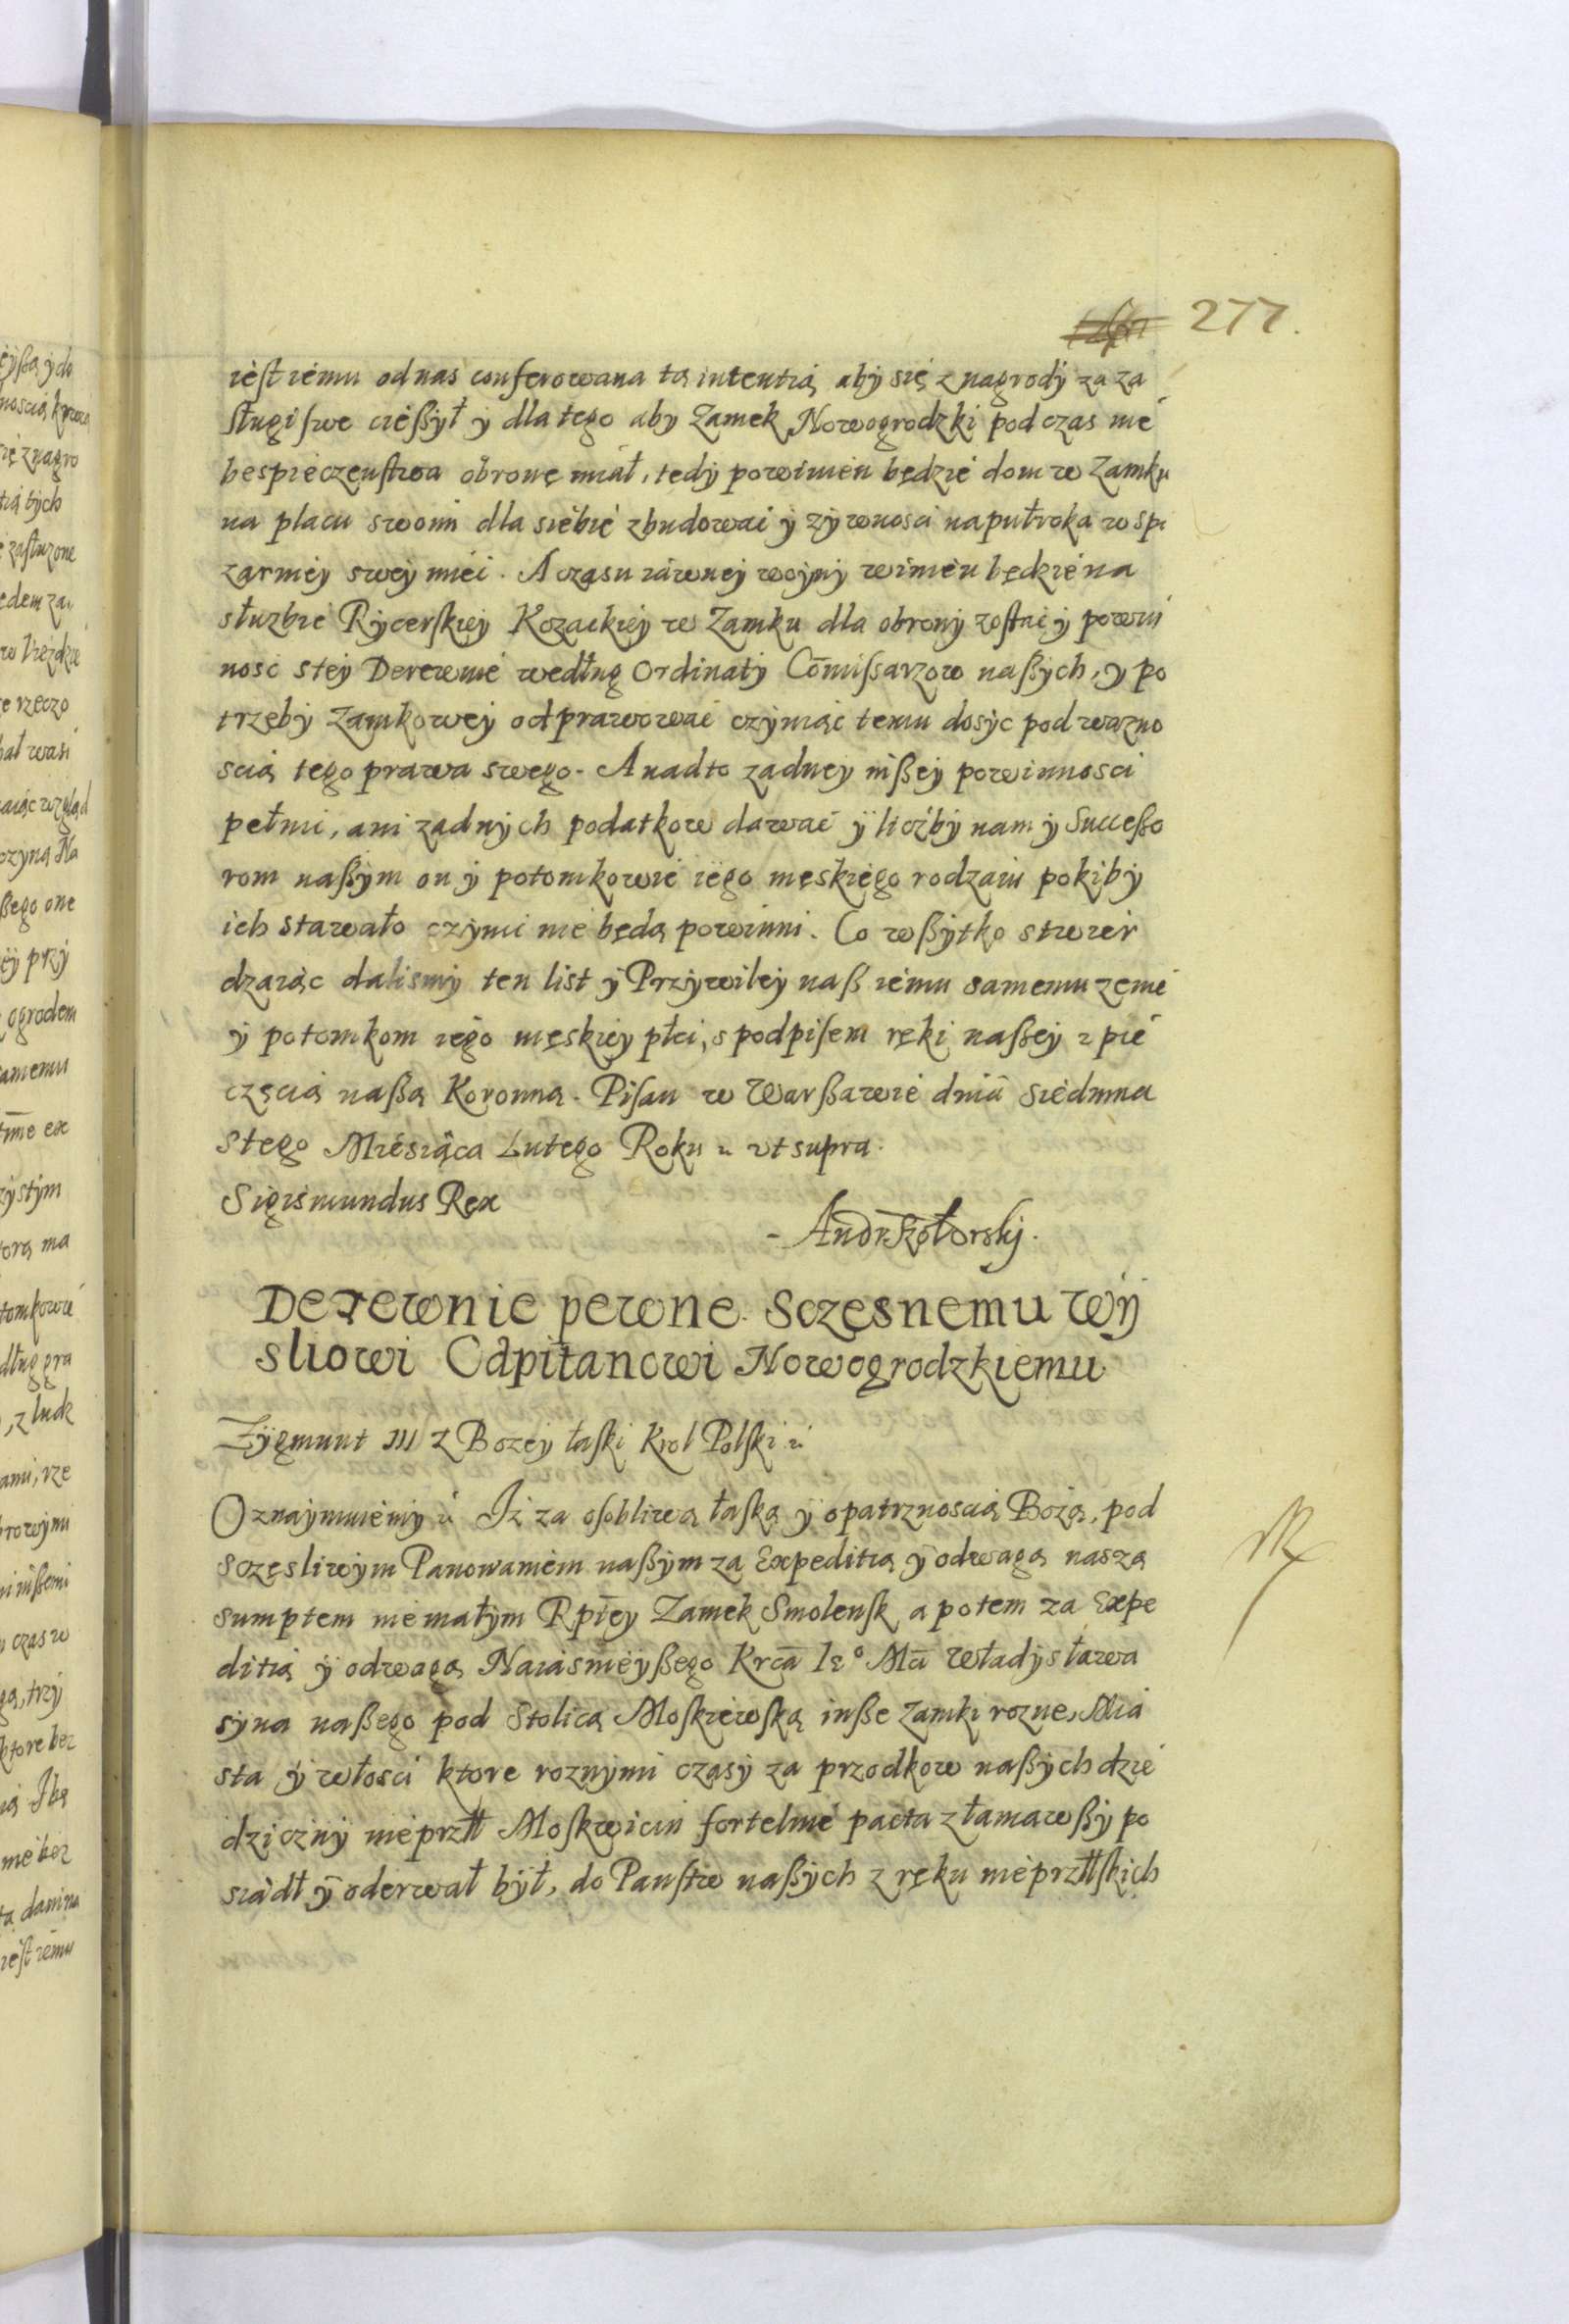 277.
iest iemu od nas conferowana tą intentią aby się z nagrody za za
sługi swe cießył y dla tego aby Zamek Nowogrodzki pod czas nie
bespieczenstwa obronę miał, tedy powinien będzie dom w Zamku
na placu swoim dla siebie zbudować y zywnosci na puł roka w spi
zarniey swey mieć. A czasu iawney woyny winien będzie na
służbie Rycerskiey Kozackiey w Zamku dla obrony zostać y powin
nosc stey Derewnie według Ordinaty Cōmissarzow naßych, y po
trzeby Zamkowey odprawować czyniąc temu dosyc pod wazno
scią tego prawa swego. A nadto zadney inßey powinnosci
pełnic, ani zadnych podatkow dawać y liczby nam y Succeßo
rom naßym on y potomkowie iego męskiego rodzaiu pokiby
ich stawało czynic nie będą powinni. Co wßytko stwier
dzaiąc dalismy ten list y Przywiley naß iemu samemu zenie
y potomkom iego męskiey płci, s podpisem ręki naßey z pie
częcią naßą Koronną. Pisan w Warßawie dnia siedmna
stego Miesiąca Lutego Roku ut supra.
Sigismundus Rex
Andr. Szołdrskj.
Derewnie pewne Sczęsnemu Wy
sliowi Capitanowi Nowogrodzkiemu
Zygmunt III z Bozey łaski Krol Polski
Oznaymuiemy Iż za osobliwą łaską y opatrznoscią Bożą, pod
sczęsliwym Panowaniem naßym za Expeditią y odwagą naszą
sumptem niemałym Rptey Zamek Smolensk a potem za Expe
ditią y odwagą Naiasnieyßego Krca Mci Władysława
syna naßego pod Stolicą Moskiewską inße Zamki rozne, Mia
sta y włosci ktore roznymi czasy za przodkow naßych dzie
dziczny nieprzÿl Moskwicin fortelnie pacta złamawßy po
siadł y oderwał był, do Panstw naßych z ręku nieprzÿlskich